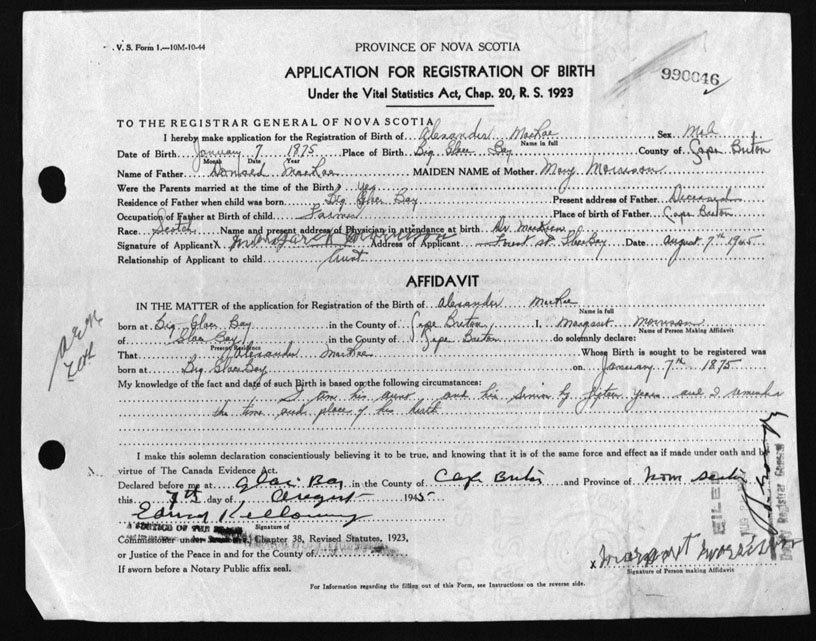 V. S. Form 1.—10M-10-44
PROVINCE OF NOVA SCOTIA
990046
APPLICATION FOR REGISTRATION OF BIRTH
Under the Vital Statistics Act, Chap. 20, R. S. 1923
TO THE REGISTRAR GENERAL OF NOVA SCOTIA
I hereby make application for the Registration of Birth of Alexander MacRae Sex Male
Name in full
Date of Birth January 7 1875 Place of Birth Big Glace Bay County of Cape Breton
Month Date Year
Name of Father Donald MacRae MAIDEN NAME of Mother Mary Morrison
Were the Parents married at the time of the Birth? yes
Residence of Father when child was born Big Glace Bay Present address of Father Deceased
Occupation of Father at Birth of child Farmer Place of birth of Father Cape Breton
Race Scotch Name and present address of Physician in attendance at birth Dr.
Signature of Applicant X Margaret Morrison Address of Applicant Forest St Glace Bay Date August 7th 1945
Relationship of Applicant to child Aunt
AFFIDAVIT
IN THE MATTER of the application for Registration of the Birth of Alexander McRae
Name in full
born at Big Glace Bay in the County of Cape Breton I, Margaret Morrison
Name of Person Making Affidavit
of Glace Bay in the County of Cape Breton do solemnly declare:
Present Residence
That Alexander McRae Whose Birth is sought to be registered was
born at Big Glace Bay on January 7th 1875
My knowledge of the fact and date of such Birth is based on the following circumstances:
I am his aunt and his senior by fifteen years and I remember
the time and place of his birth
I make this solemn declaration conscientiously believing it to be true, and knowing that it is of the same force and effect as if made under oath and by
virtue of The Canada Evidence Act.
Declared before me at Glace Bay in the County of Cape Breton and Province of Nova Scotia
this 7th day of August 1945
Signature of
Commissioner under Chapter 38, Revised Statutes, 1923,
or Justice of the Peace in and for the County of
If sworn before a Notary Public affix seal.
FILED
Registrar General
X Margaret Morrison
Signature of Person making Affidavit
For Information regarding the filling out of this Form, see Instructions on the reverse side.